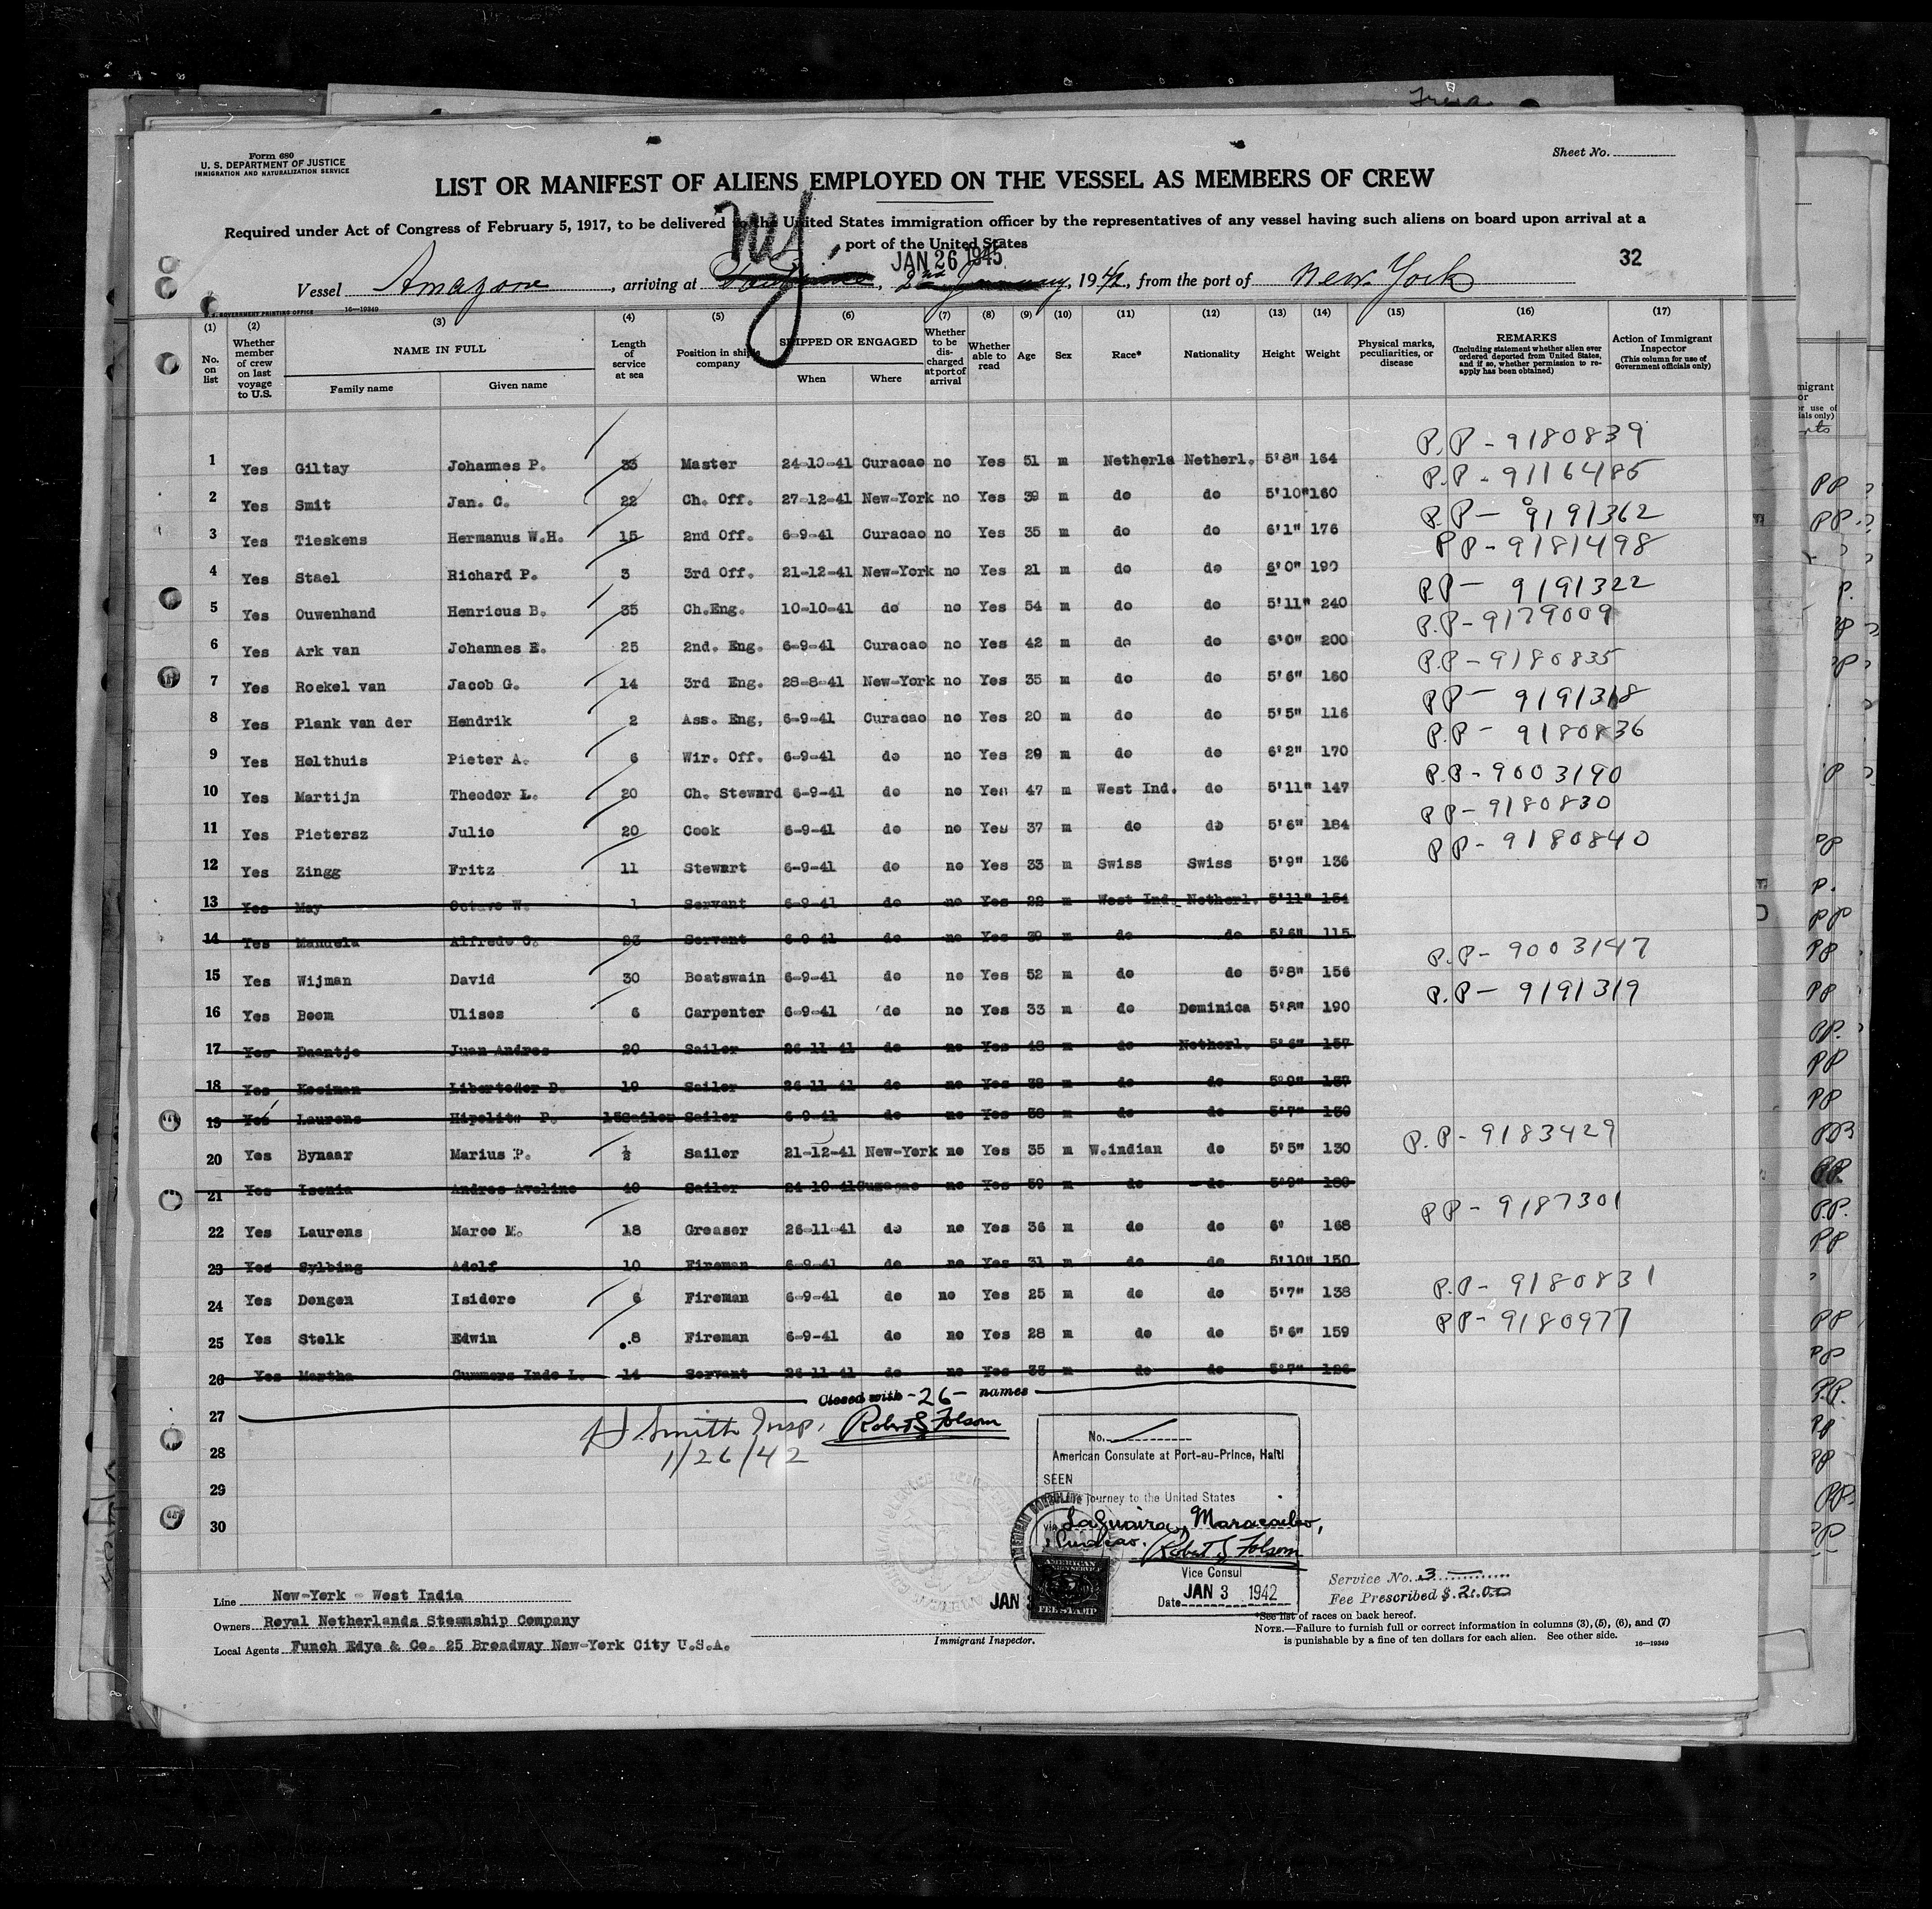 Form 680
U. S. DEPARTMENT OF JUSTICE
IMMIGRATION AND NATURALIZATION SERVICE
Sheet No.
LIST OR MANIFEST OF ALIENS EMPLOYED ON THE VESSEL AS MEMBERS OF CREW
Required under Act of Congress of February 5, 1917, to be delivered to the United States immigration officer by the representatives of any vessel having such aliens on board upon arrival at a
port of the United States
JAN 26 1945
32
Vessel Amazone, arriving at, 2nd January, 1942, from the port of New York
U.S. GOVERNMENT PRINTING OFFICE 16—19349
(1) (2) (3) (4) (5) (6) (7) (8) (9) (10) (11) (12) (13) (14) (15) (16) (17)
No. on list
Whether member of crew on last voyage to U.S.
NAME IN FULL
Family name
Given name
Length of service at sea
Position in ship's company
SHIPPED OR ENGAGED
When
Where
Whether to be discharged at port of arrival
Whether able to read
Age
Sex
Race*
Nationality
Height
Weight
Physical marks, peculiarities, or disease
REMARKS
(Including statement whether alien ever ordered deported from United States, and if so, whether permission to reapply has been obtained)
Action of Immigrant Inspector
(This column for use of Government officials only)
1 Yes Giltay Johannes P. 35 Master 24-10-41 Curacao no Yes 51 m Netherla Netherl. 5'8" 164 P.P - 9180839
2 Yes Smit Jan. C. 22 Ch. Off. 27-12-41 New-York no Yes 39 m do do 5'10" 160 P.P - 9116485
3 Yes Tieskens Hermanus W.H. 15 2nd Off. 6-9-41 Curacao no Yes 35 m do do 6'1" 176 P.P - 9191362
4 Yes Stael Richard P. 3 3rd Off. 21-12-41 New-York no Yes 21 m do do 6'0" 190 PP - 9181498
5 Yes Ouwenhand Henricus B. 35 Ch.Eng. 10-10-41 do no Yes 54 m do do 5'11" 240 P.P - 9191322
6 Yes Ark van Johannes E. 25 2nd. Eng. 6-9-41 Curacao no Yes 42 m do do 6'0" 200 P.P - 9179009
7 Yes Roekel van Jacob G. 14 3rd Eng. 28-8-41 New-York no Yes 35 m do do 5'6" 160 P.P - 9180835
8 Yes Plank van der Hendrik 2 Ass. Eng. 6-9-41 Curacao no Yes 20 m do do 5'5" 116 PP - 9191318
9 Yes Holthuis Pieter A. 6 Wir. Off. 6-9-41 do no Yes 29 m do do 6'2" 170 P.P - 9180836
10 Yes Martijn Theodor L. 20 Ch. Steward 6-9-41 do no Yes 47 m West Ind. do 5'11" 147 P.P - 9003190
11 Yes Pietersz Julio 20 Cook 6-9-41 do no Yes 37 m do do 5'6" 184 PP - 9180830
12 Yes Zingg Fritz 11 Stewart 6-9-41 do no Yes 33 m Swiss Swiss 5'9" 136 PP - 9180840
13 Yes May Octave W. 1 Servant 6-9-41 do no Yes 22 m West Ind. Netherl. 5'11" 154
14 Yes Manuela Alfredo C. 23 Servant 6-9-41 do no Yes 39 m do do 5'6" 115
15 Yes Wijman David 30 Boatswain 6-9-41 do no Yes 52 m do do 5'8" 156 P.P - 9003147
16 Yes Boom Ulises 6 Carpenter 6-9-41 do no Yes 33 m do Dominica 5'8" 190 P.P - 9191319
17 Yes Daantje Juan Andres 20 Sailor 26-11-41 do no Yes 48 m do Netherl. 5'6" 157
18 Yes Kooiman Libertador D. 19 Sailor 26-11-41 do no Yes 38 m do do 5'9" 137
19 Yes Laurens Hipolito P. 15Sailor Sailor 6-9-41 do no Yes 38 m do do 5'7" 159
20 Yes Bynaar Marius P. ½ Sailor 21-12-41 New-York no Yes 35 m W.indian do 5'5" 130 P.P - 9183429
21 Yes Isenia Andres Aveline 40 Sailor 24-10-41 Curacao no Yes 59 m do do 5'9" 180
22 Yes Laurens Marco M. 18 Greaser 26-11-41 do no Yes 36 m do do 6' 168 PP - 9187301
23 Yes Sylbing Adolf 10 Fireman 6-9-41 do no Yes 31 m do do 5'10" 150
24 Yes Dongen Isidore 6 Fireman 6-9-41 do no Yes 25 m do do 5'7" 138 P.P - 9180831
25 Yes Stolk Edwin 8 Fireman 6-9-41 do no Yes 28 m do do 5'6" 159 PP - 9180977
26 Yes Martha Gummers Inde L. 14 Servant 26-11-41 do no Yes 33 m do do 5'7" 126
Closed with - 26 - names
27
H Smith Insp. Robert S Folsom
1/26/42
28
29
30
No.
American Consulate at Port-au-Prince, Haiti
SEEN
journey to the United States
via LaGuaira, Maracaibo,
Curacao.
Robert S Folsom
Vice Consul
Date JAN 3 1942
JAN 3
AMERICAN
FEE STAMP
Service No. 3
Fee Prescribed $ 2.00
Line New-York - West India
Owners Royal Netherlands Steamship Company
Local Agents Funch Edye & Co. 25 Broadway New-York City U.S.A.
Immigrant Inspector.
*See list of races on back hereof.
NOTE.—Failure to furnish full or correct information in columns (3), (5), (6), and (7)
is punishable by a fine of ten dollars for each alien. See other side. 16—19349